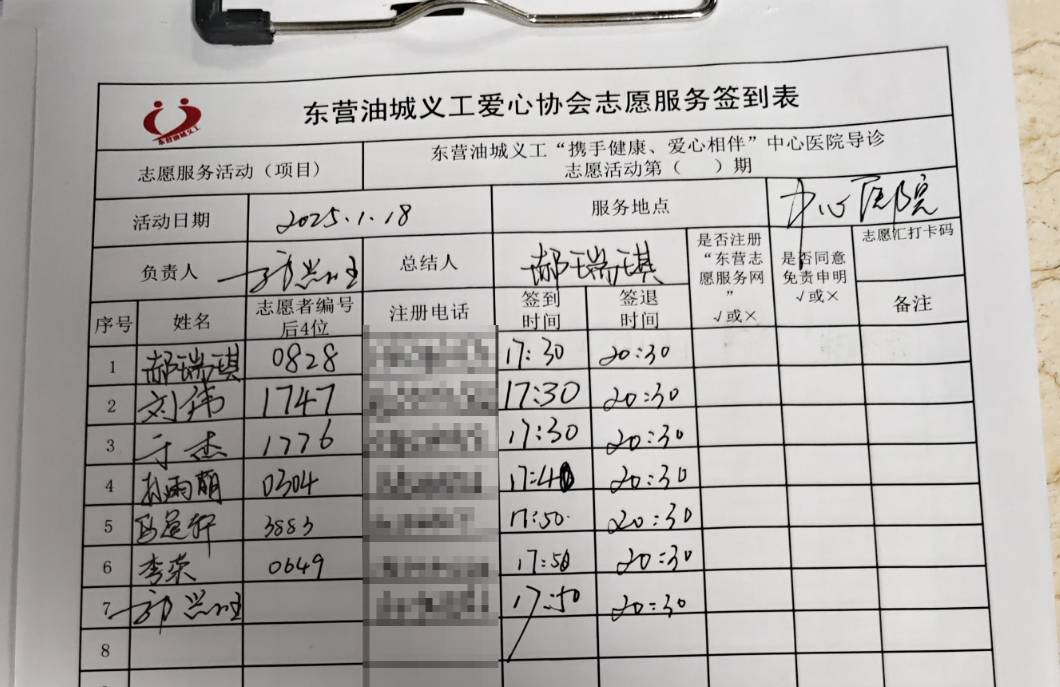 东营油城义工
东营油城义工爱心协会志愿服务签到表
志愿服务活动（项目）
东营油城义工“携手健康、爱心相伴”中心医院导诊
志愿活动第（ ）期
活动日期 2025.1.18 服务地点 中心医院
负责人 总结人 郝瑞琪
是否注册
“东营志
愿服务网
”
√或×
是否同意
免责申明
√或×
志愿汇打卡码
备注
序号 姓名 志愿者编号
后4位 注册电话 签到
时间 签退
时间
1 郝瑞琪 0828 17:30 20:30
2 刘伟 1747 17:30 20:30
3 于杰 1776 17:30 20:30
4 孙雨萌 0304 17:40 20:30
5 3883 17:50 20:30
6 李荣 0649 17:50 20:30
7 17:50 20:30
8